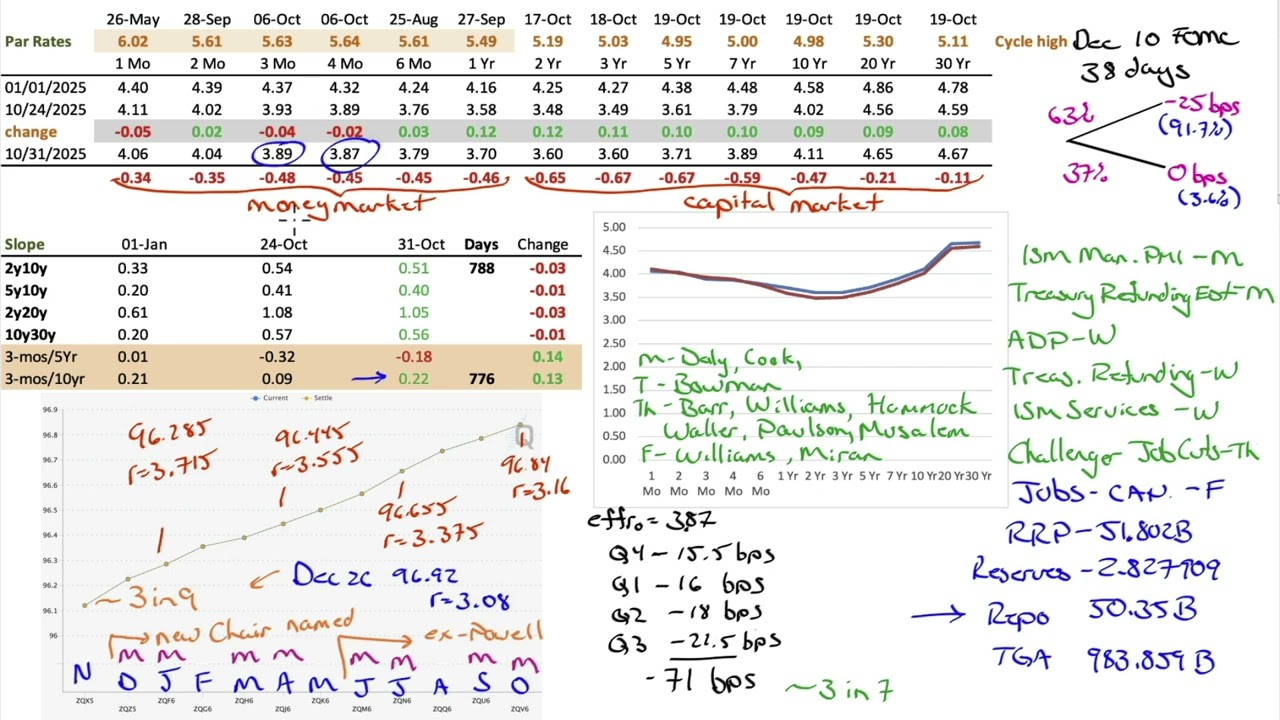 26-May 28-Sep 06-Oct 06-Oct 25-Aug 27-Sep 17-Oct 18-Oct 19-Oct 19-Oct 19-Oct 19-Oct 19-Oct
Par Rates 6.02 5.61 5.63 5.64 5.61 5.49 5.19 5.03 4.95 5.00 4.98 5.30 5.11 Cycle high
1 Mo 2 Mo 3 Mo 4 Mo 6 Mo 1 Yr 2 Yr 3 Yr 5 Yr 7 Yr 10 Yr 20 Yr 30 Yr
01/01/2025 4.40 4.39 4.37 4.32 4.24 4.16 4.25 4.27 4.38 4.48 4.58 4.86 4.78
10/24/2025 4.11 4.02 3.93 3.89 3.76 3.58 3.48 3.49 3.61 3.79 4.02 4.56 4.59
change -0.05 0.02 -0.04 -0.02 0.03 0.12 0.12 0.11 0.10 0.10 0.09 0.09 0.08
10/31/2025 4.06 4.04 3.89 3.87 3.79 3.70 3.60 3.60 3.71 3.89 4.11 4.65 4.67
-0.34 -0.35 -0.48 -0.45 -0.45 -0.46 -0.65 -0.67 -0.67 -0.59 -0.47 -0.21 -0.11
money market capital market
Dec 10 FOMC
38 days
63% -25 bps
(91.7%)
37% 0 bps
(3.6%)
Slope 01-Jan 24-Oct 31-Oct Days Change
2y10y 0.33 0.54 0.51 788 -0.03
5y10y 0.20 0.41 0.40 -0.01
2y20y 0.61 1.08 1.05 -0.03
10y30y 0.20 0.57 0.56 -0.01
3-mos/5Yr 0.01 -0.32 -0.18 0.14
3-mos/10yr 0.21 0.09 0.22 776 0.13
5.00
4.50
4.00
3.50
3.00
2.50
2.00
1.50
1.00
0.50
0.00
1 Mo 2 Mo 3 Mo 4 Mo 6 Mo 1 Yr 2 Yr 3 Yr 5 Yr 7 Yr 10 Yr 20 Yr 30 Yr
M - Daly, Cook,
T - Bowman
Th - Barr, Williams, Hammock
Waller, Paulson, Musalem
F - Williams, Miran
ISM Man. PMI - M
Treasury Refunding Est - M
ADP - W
Treas. Refunding - W
ISM Services - W
Challenger Job Cuts - Th
Jobs - CAN. - F
RRP - 51.802B
Reserves - 2.827909
Repo 50.35B
TGA 983.859B
Current Settle
96.9
96.8
96.7
96.6
96.5
96.4
96.3
96.2
96.1
96
96.285
r=3.715
96.445
r=3.555
96.655
r=3.375
96.84
r=3.16
Dec 26 96.92
r=3.08
~ 3 in 9
new Chair named
ex-Powell
M M M M M M M M
N D J F M A M J J A S O
ZQX5 ZQZ5 ZQF6 ZQG6 ZQH6 ZQJ6 ZQK6 ZQM6 ZQN6 ZQQ6 ZQU6 ZQV6
effro = 3.87
Q4 - 15.5 bps
Q1 - 16 bps
Q2 - 18 bps
Q3 - 21.5 bps
- 71 bps ~ 3 in 7